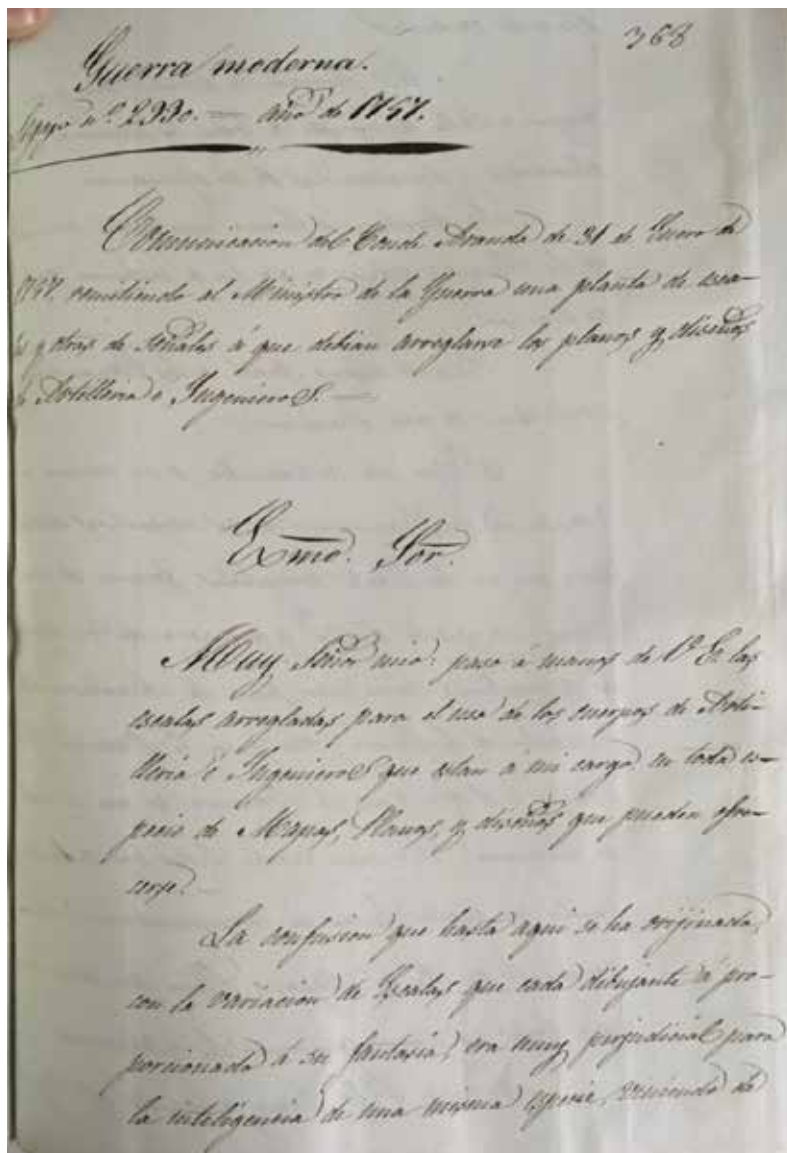 368
Guerra moderna.
Legajo nº. 2990. — año de 1757.
Comunicacion del Conde Aranda de 31 de Enero de
1757. remitiendo al Ministro de la Guerra una planta de esca-
las y otras de señales á que debian arreglarse los planos y diseños
de Artilleria é Ingenieros. —
Exmo. Sor.
Muy Señor mio: paso á manos de V. E. las
escalas arregladas para el uso de los cuerpos de Arti-
lleria é Ingenieros que estan á mi cargo en toda es-
pecie de Mapas, Planos, y diseños que pueden ofre-
cerse. —
La confusion que hasta aqui se ha orijinado,
con la variacion de Escalas que cada dibujante á pro-
porcionado á su fantasia, era muy perjudicial para
la inteligencia de una misma especie, viniendo de